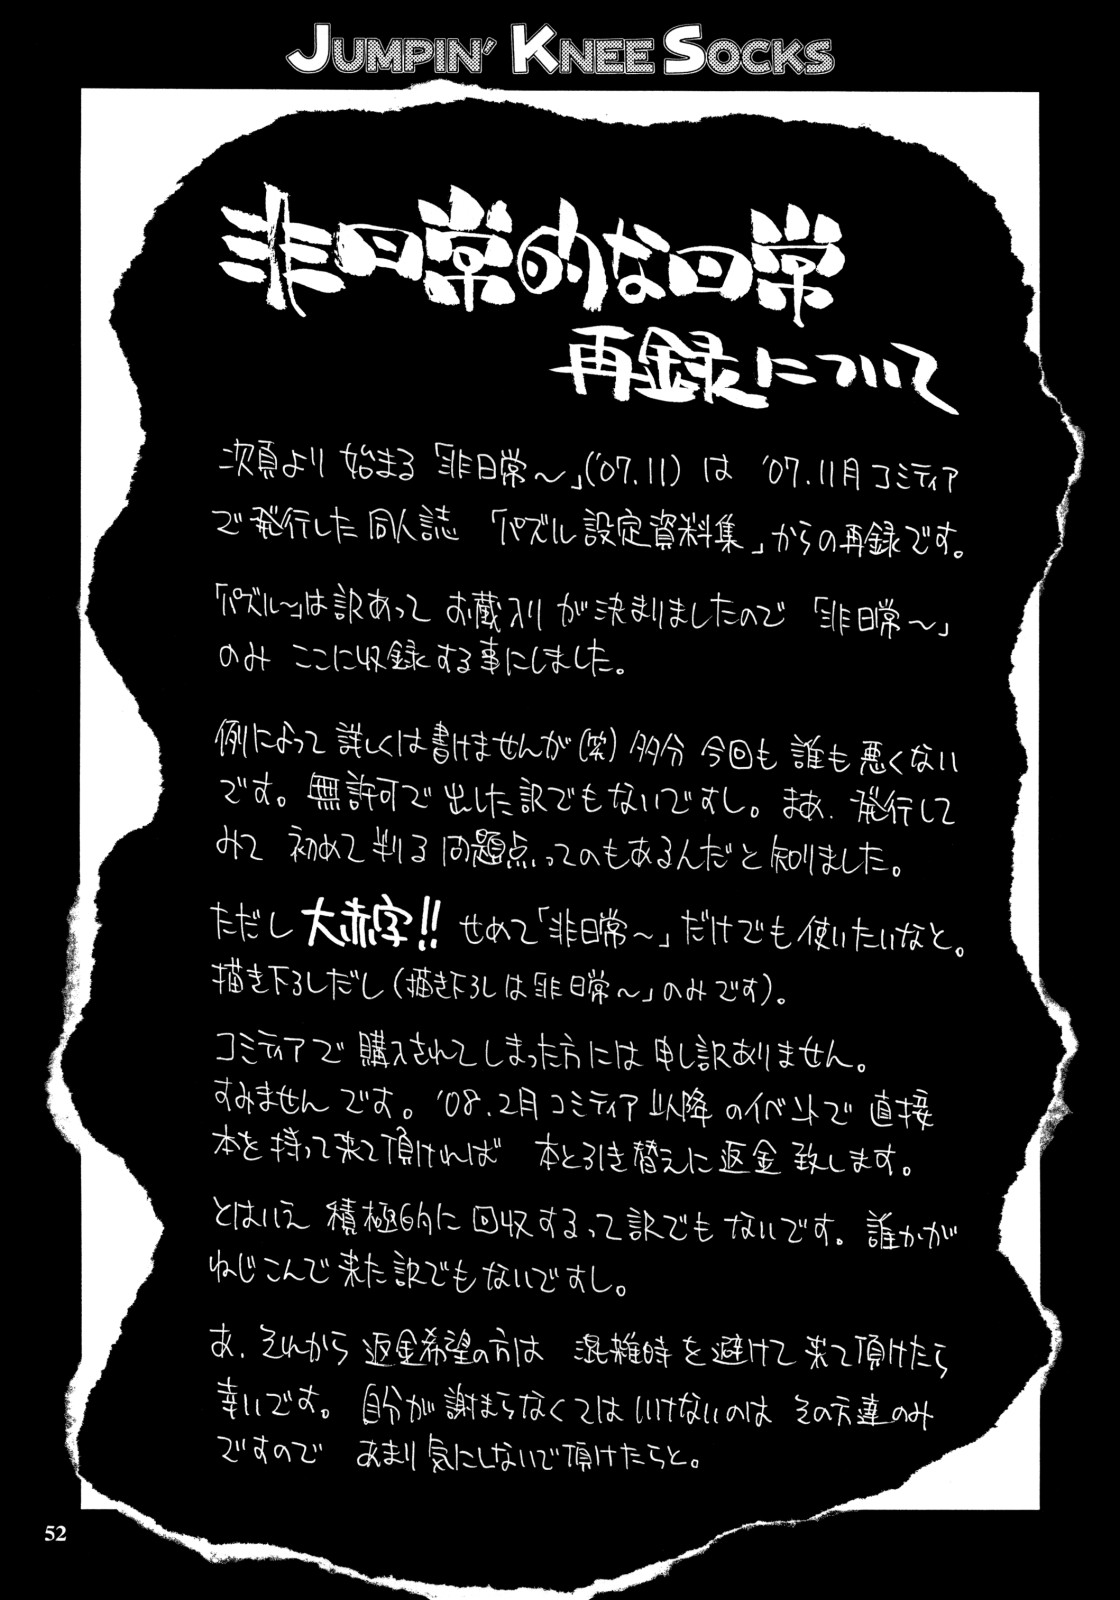 JUMPIN' KNEE SOCKS
非日常的な日常
再録について
次頁より始まる「非日常〜」('07.11)は '07.11月コミティア
で発行した同人誌 「パズル設定資料集」からの再録です。
「パズル〜」は訳あって お蔵入りが決まりましたので 「非日常〜」
のみ ここに収録する事にしました。
例によって詳しくは書けませんが(笑)多分 今回も誰も悪くない
です。無許可で出した訳でもないですし。まあ、発行して
みて 初めて判る問題点ってのもあるんだと知りました。
ただし 大赤字!! せめて「非日常〜」だけでも使いたいなと。
描き下ろしだし(描き下ろしは「非日常〜」のみです)。
コミティアで購入されてしまった方には申し訳ありません。
すみませんです。'08.2月コミティア以降のイベントで直接
本を持って来て頂ければ 本と引き替えに返金致します。
とはいえ 積極的に回収するって訳でもないです。誰かが
ねじこんで来た訳でもないですし。
あ、それから返金希望の方は 混雑時を避けて来て頂けたら
幸いです。 自分が謝まらなくてはいけないのは その方達のみ
ですので あまり気にしないで頂けたらと。
52